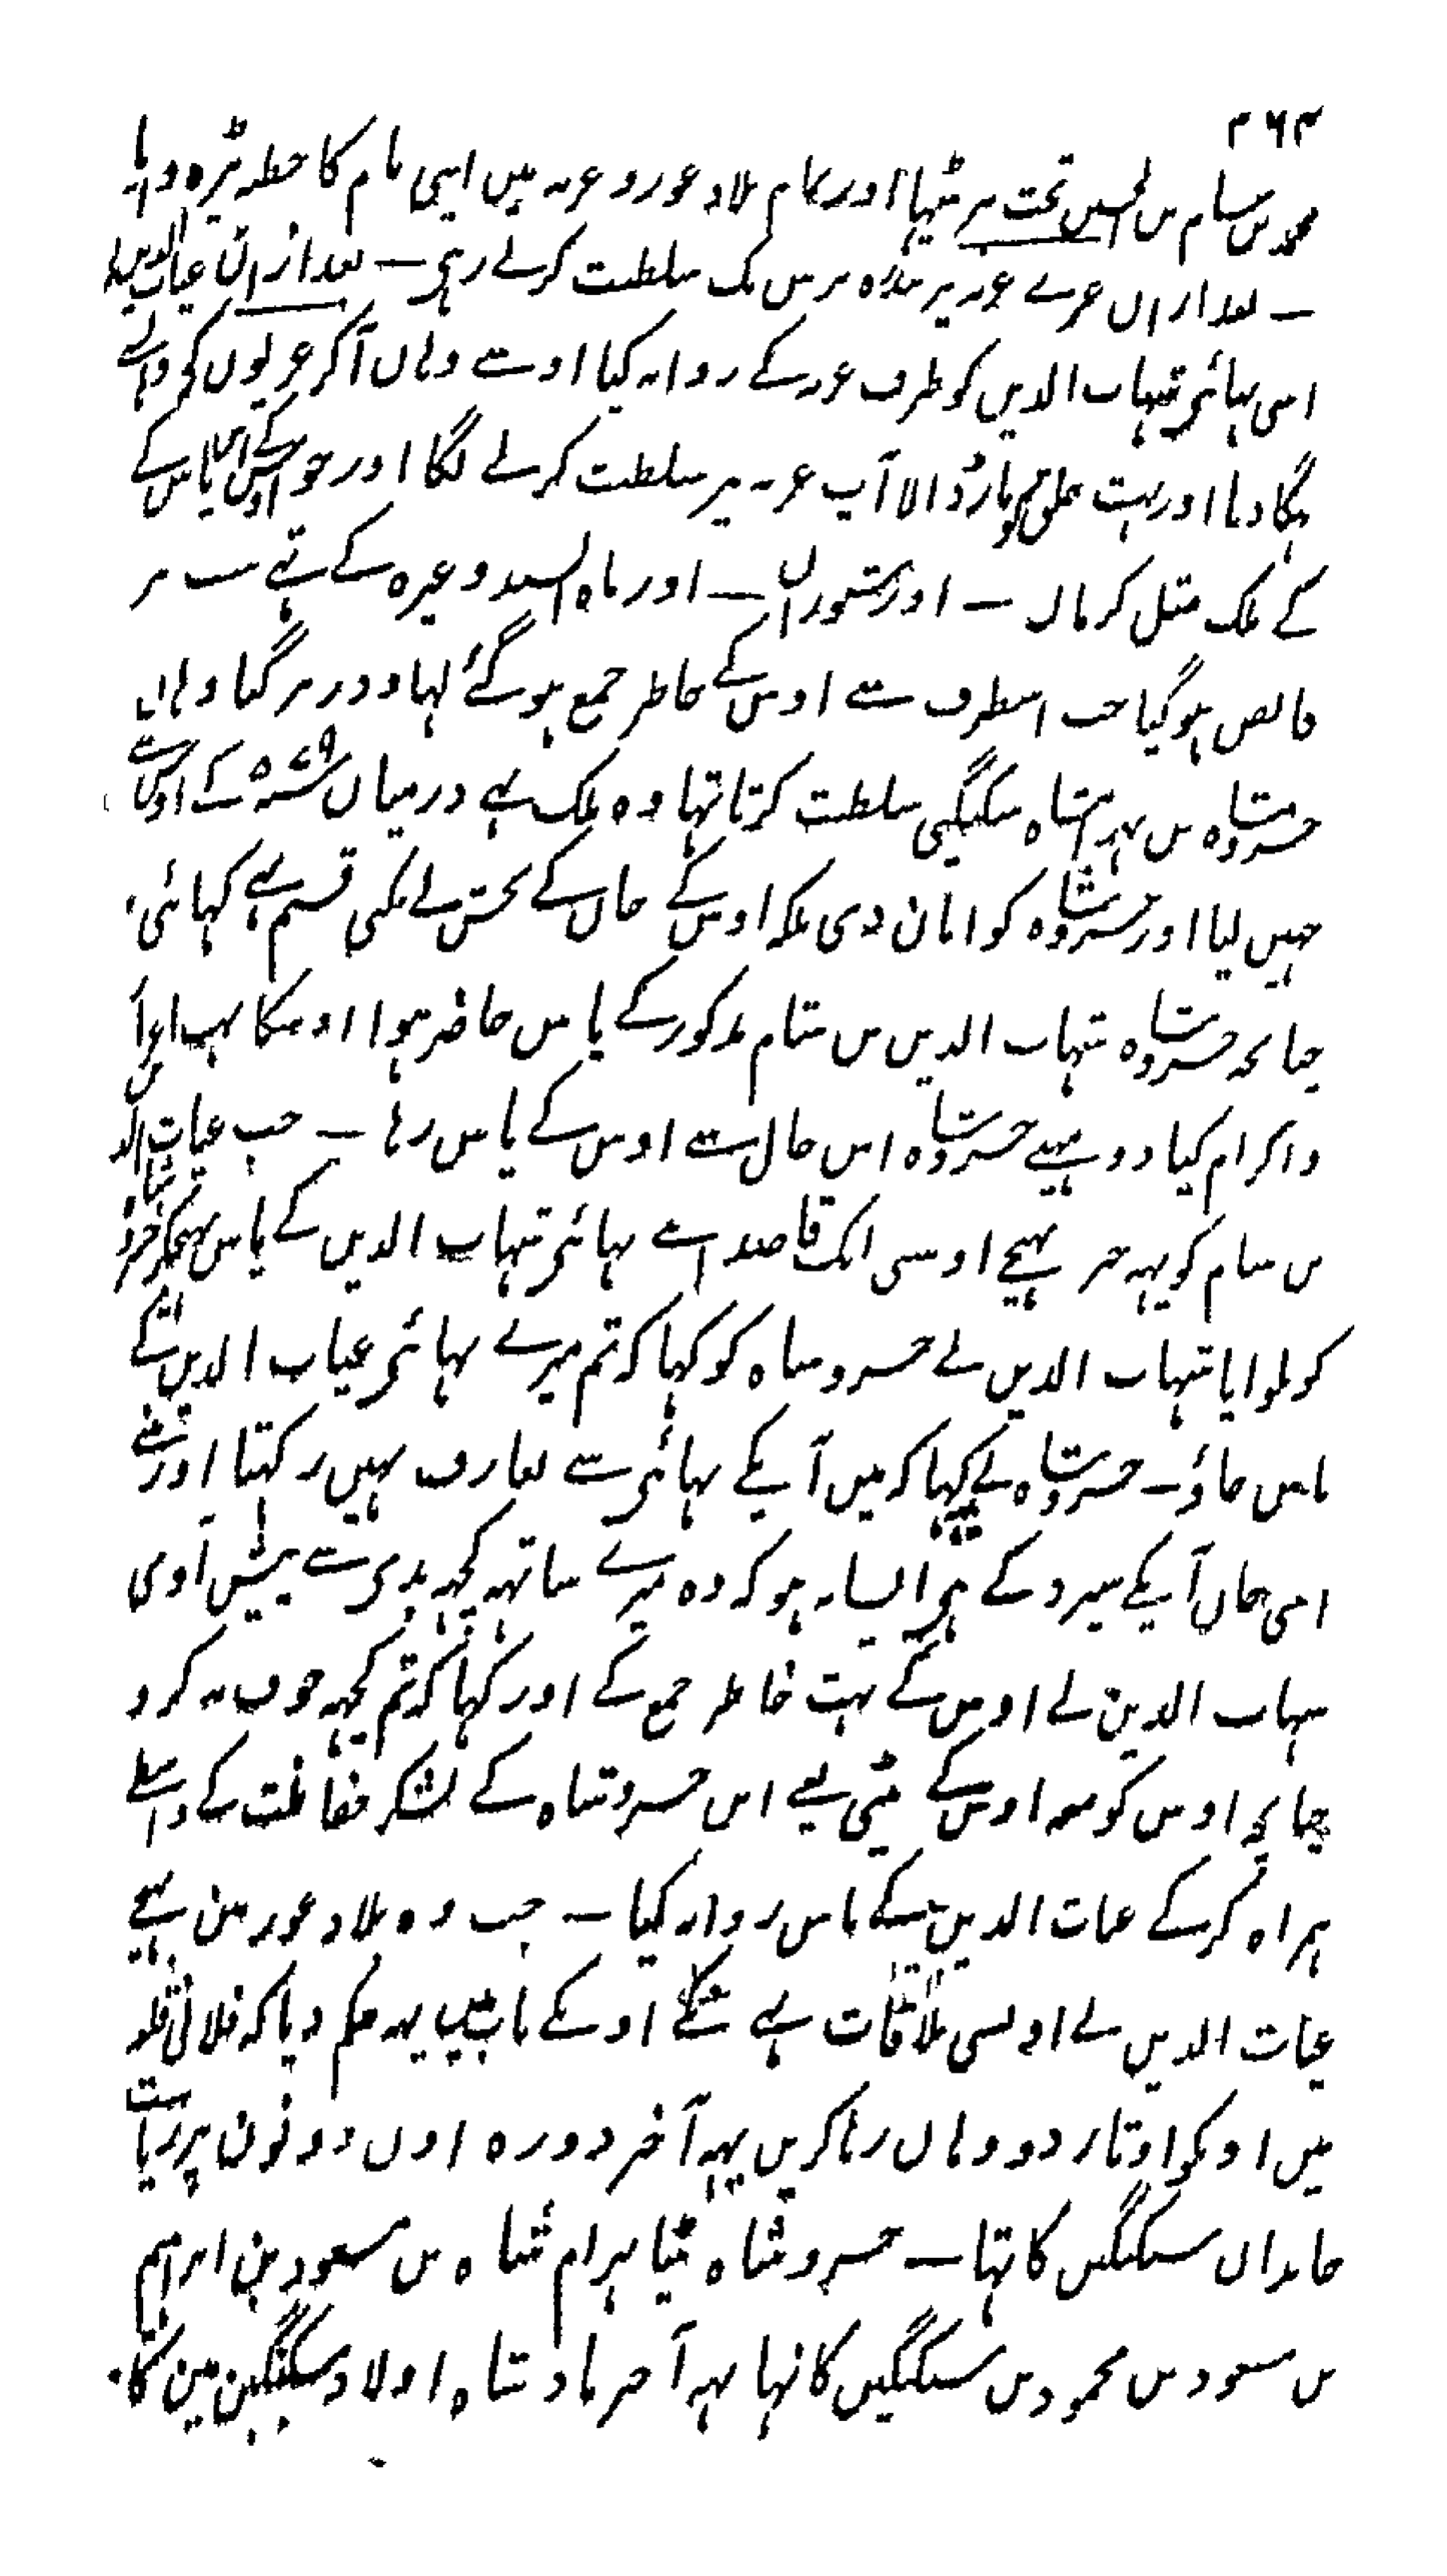 ۳۶۴
محمد بن سام بن الحسین تخت پر بیٹھا اور تمام بلاد غور و غزنہ میں اپنی نام کا خطبہ پڑہوایا
— بعد ازان غزنے غزنہ پر پندرہ برس تک سلطنت کرتے رہی — بعد ازان غیاث الدین نے
اپنی بہائی شہاب الدین کو طرف غزنہ کے روانہ کیا اوسنے وہاں آکر غزیوں کو وہانسے
بہگا دیا اور بہت خلق کو مار ڈالا آپ غزنہ پر سلطنت کرنے لگا اور جو اوس کے آس پاس کے
کے ملک مثل کرمان — اور شنوران — اور ماہ السند وغیرہ کے تہے سب پر
قابض ہوگیا جب اسطرف سے اوس کے خاطر جمع ہوگئے لہاوور پر گیا وہاں
خسروشاہ بن بہرامشاہ سبکتگینی سلطنت کرتا تہا وہ ملک بہے درمیان ۵۷۹ سنہ کے اوسسے
چہین لیا اور خسروشاہ کو امان دی بلکہ اوس کے جان کے بخشنے کی قسم بہے کہائی
چنانچہ خسروشاہ شہاب الدین بن سام مذکور کے پاس حاضر ہوا اوسکا بہت اعزاز
و اکرام کیا دو مہینے خسروشاہ اس حال سے اوس کے پاس رہا — جب غیاث الدین
بن سام کو یہہ خبر پہنچے اوسی ایک قاصد اپنے بہائی شہاب الدین کے پاس بہیجکر خسروشاہ
کو بلوایا شہاب الدین نے خسروشاہ کو کہا کہ تم میرے بہائی غیاث الدین کے
پاس جاؤ — خسروشاہ نے کہا کہ میں آپکے بہائی سے تعارف نہیں رکہتا اور مینے
اپنی جان آپکے سپرد کے ہی ایسا نہ ہو کہ وہ میرے ساتہہ کچہہ بدی سے پیش آوی
شہاب الدین نے اوس کے بہت خاطر جمع کے اور کہا کہ تم کچہہ خوف نہ کرو
چنانچہ اوس کو معہ اوس کے بیٹی اس خسروشاہ کے لشکر حفاظت کے واسطے
ہمراہ کرکے غیاث الدین کے پاس روانہ کیا — جب وہ بلاد غور مین پہنچے
غیاث الدین نے اونسی ملاقات بہے نکے اونکے باب میں یہہ حکم دیا کہ فلانی قلعہ
میں اونکو اوتار دو وہاں رہا کریں یہہ آخر دورہ اون دونون پر ریاست
خاندان سبکتگین کا تہا — خسروشاہ بیٹا بہرام شاہ بن مسعود بن ابراہیم
بن مسعود بن محمود بن سبکتگین کا تہا یہہ آخر بادشاہ اولاد سبکتگین مین کا